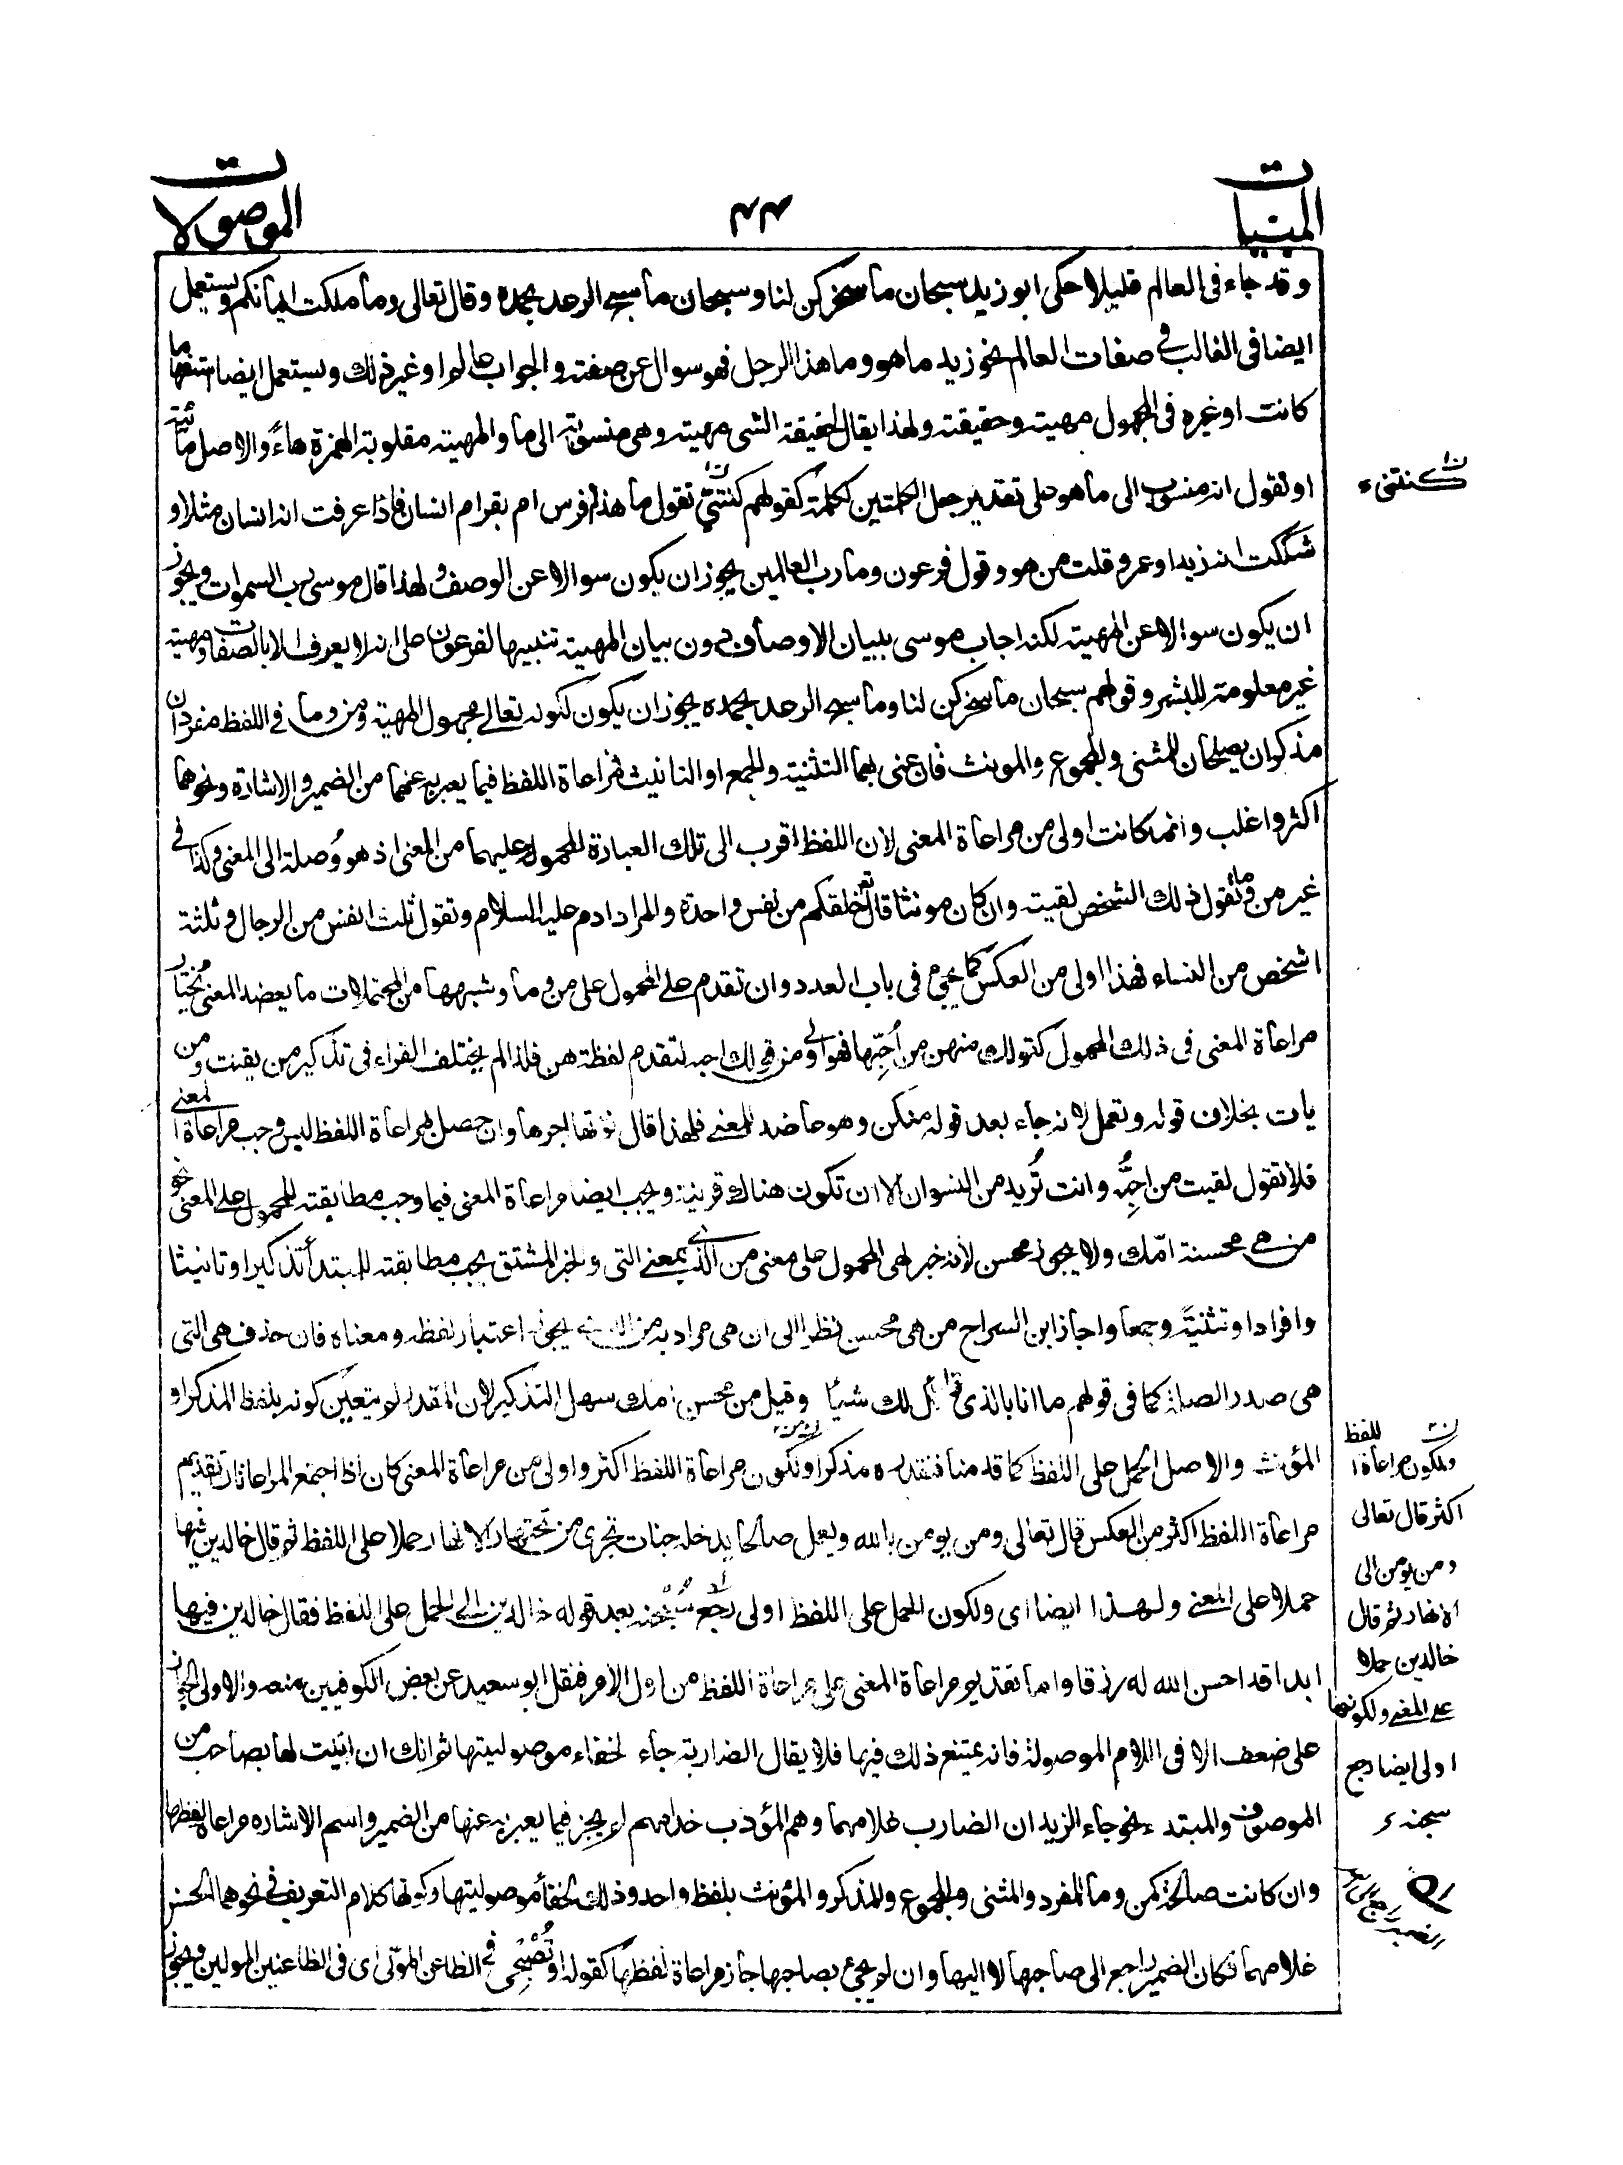 المبنيات
٤٤
الموصولات
وقد جاء فى العالم قليلا حكى ابو زيد سبحان ما سخركن لنا وسبحان ما سبح الرعد بحمده وقال تعالى وما ملكت ايمانكم ويستعمل
ايضا فى الغالب فى صفات العالم نحو زيد ما هو وما هذا الرجل فهو سوال عن صفته والجواب عالم او غير ذلك ويستعمل ايضا استفهاما
كانت او غيره فى المجهول مهيته وحقيقته ولهذا يقال لحقيقة الشى مهيته وهى منسوبة الى ما والمهية مقلوبة الهمزة هاءً والاصل مائية
او نقول انه منسوب الى ما هو على تقدير جعل الكلمتين ككلمة كقولهم كنتىّ تقول ما هذا افرس ام بقر ام انسان فاذا عرفت انه انسان مثلا و
شككت انه زيد او عمرو قلت من هو وقول فرعون وما رب العالمين يجوز ان يكون سوالا عن الوصف ولهذا قال موسى رب السموات ويجوز
ان يكون سوالا عن المهية لكنه اجاب موسى ببيان الاوصاف دون بيان المهية تنبيها لفرعون على انه لا يعرف الا بالصفات ومهيته
غير معلومة للبشر وقولهم سبحان ما سخركن لنا وما سبح الرعد بحمده يجوز ان يكون لكونه تعالى مجهول المهية ومن وما فى اللفظ مفردان
مذكران يصلحان للمثنى والمجموع والمونث فان عنى بهما التثنية والجمع او التانيث فمراعاة اللفظ فيما يعبر به عنهما من الضمير والاشارة ونحوهما
اكثر واغلب وانما كانت اولى من مراعاة المعنى لان اللفظ اقرب الى تلك العبارة المحمولة عليهما من المعنى اذ هو وُصلة الى المعنى وكذا فى
غير من وما تقول ذلك الشخص لقيته وان كان مونثا قال تع خلقكم من نفس واحدة والمراد ادم عليه السلام وتقول ثلث انفس من الرجال وثلثة
اشخص من النساء فهذا اولى من العكس كما يجئ فى باب العدد وان تقدم على المحمول على من وما وشبههما من المحتملات ما يعضد المعنى يُختار
مراعاة المعنى فى ذلك المحمول كقولك منهن من اُحِبّها فهو اولى من قولك احبه لتقدم لفظة هن فلذا لم يختلف القراء فى تذكير من يقنت ومن
يات بخلاف قوله وتعمل لانه جاء بعد قوله منكن وهو عاضد للمعنى فلهذا قال نؤتها اجرها وان حصل بمراعاة اللفظ لبس وجب مراعاة المعنى
فلا تقول لقيت من احِبُّه وانت تُريد من النسوان الا ان تكون هناك قرينة ويجب ايضا مراعاة المعنى فيما وجب مطابقته للمحمول على المعنى نحو
من هى محسنة امّك ولا يجوز محسن لانه خبر لهى المحمول على معنى من الذى بمعنى التى والخبر المشتق يجب مطابقته للمبتدأ تذكيرا وتانيثا
وافرادا وتثنيةً وجمعا واجاز ابن السراج من هى محسن نظرا الى ان هى مراد به من الذى يجوز اعتبار لفظه ومعناه فان حذف هى التى
هى صدر الصلة كما فى قولهم ما انا بالذى قائل لك شيئًا وقيل من محسن امك سهل التذكير لان المقدر لا يتعين كونه بلفظ المذكر او
المؤنث والاصل الحمل على اللفظ كما قدمنا فنقدره مذكرا ولكون مراعاة اللفظ اكثر واولى من مراعاة المعنى كان اذا اجتمع المراعاتان تقديم
مراعاة اللفظ اكثر من العكس قال تعالى ومن يومن بالله ويعمل صالحا يدخله جنات تجرى من تحتها الانهار حملا على اللفظ ثم قال خالدين فيها
حملا على المعنى ولهذا ايضا اى ولكون الحمل على اللفظ اولى رجع بعد قوله خالدين الى الحمل على اللفظ فقال خالدين فيها
ابدا قد احسن الله له رزقا واما تقديم مراعاة المعنى على مراعاة اللفظ من اول الامر فنقل ابو سعيد عن بعض الكوفيين منعه والاولى الجواز
على ضعف الا فى اللام الموصولة فانه يمتنع ذلك فيها فلا يقال الضاربة جاء لخفاء موصوليتها ثم انك ان اتيت لها بصاحب من
الموصوف والمبتدء نحو جاء الزيدان الضارب غلامهما وهم المؤدب خدامهم لم يجز فيما يعبر به عنها من الضمير واسم الاشاره مراعاة لفظها
وان كانت صالحة كمن وما للمفرد والمثنى والمجموع وللمذكر والمؤنث بلفظ واحد وذلك لخفأ موصوليتها وكونها كلام التعريف فى نحو هما الحسن
غلامهما فكان الضمير راجع الى صاحبها لا اليها وان لم يجئ بصاحبها جاز مراعاة لفظها كقوله او تُصْبِحى فى الظاعن المولّى اى فى الظاعنين المولين ويجوز
كنتنى
للفظ
ولكون مراعاة ا
اكثر قال تعالى
ومن يومن الى
الانهار ثم قال
خالدين حملا
على المعنى ولكونها
اولى ايضا رجع